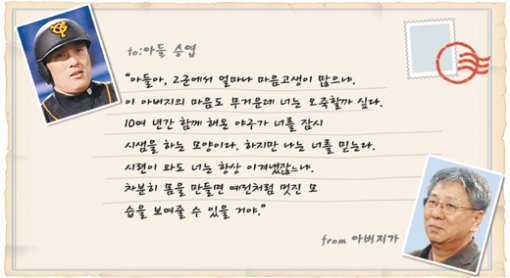 to:아들 승엽
"아들아, 2군에서 얼마나 마음고생이 많으냐.
이 아버지의 마음도 무거운데 너는 오죽할까 싶다.
10여 년간 함께 해온 야구가 너를 잠시
시샘을 하는 모양이다. 하지만 나는 너를 믿는다.
시련이 와도 너는 항상 이겨냈잖느냐.
차분히 몸을 만들면 예전처럼 멋진 모
습을 보여줄 수 있을 거야."
from 아버지가